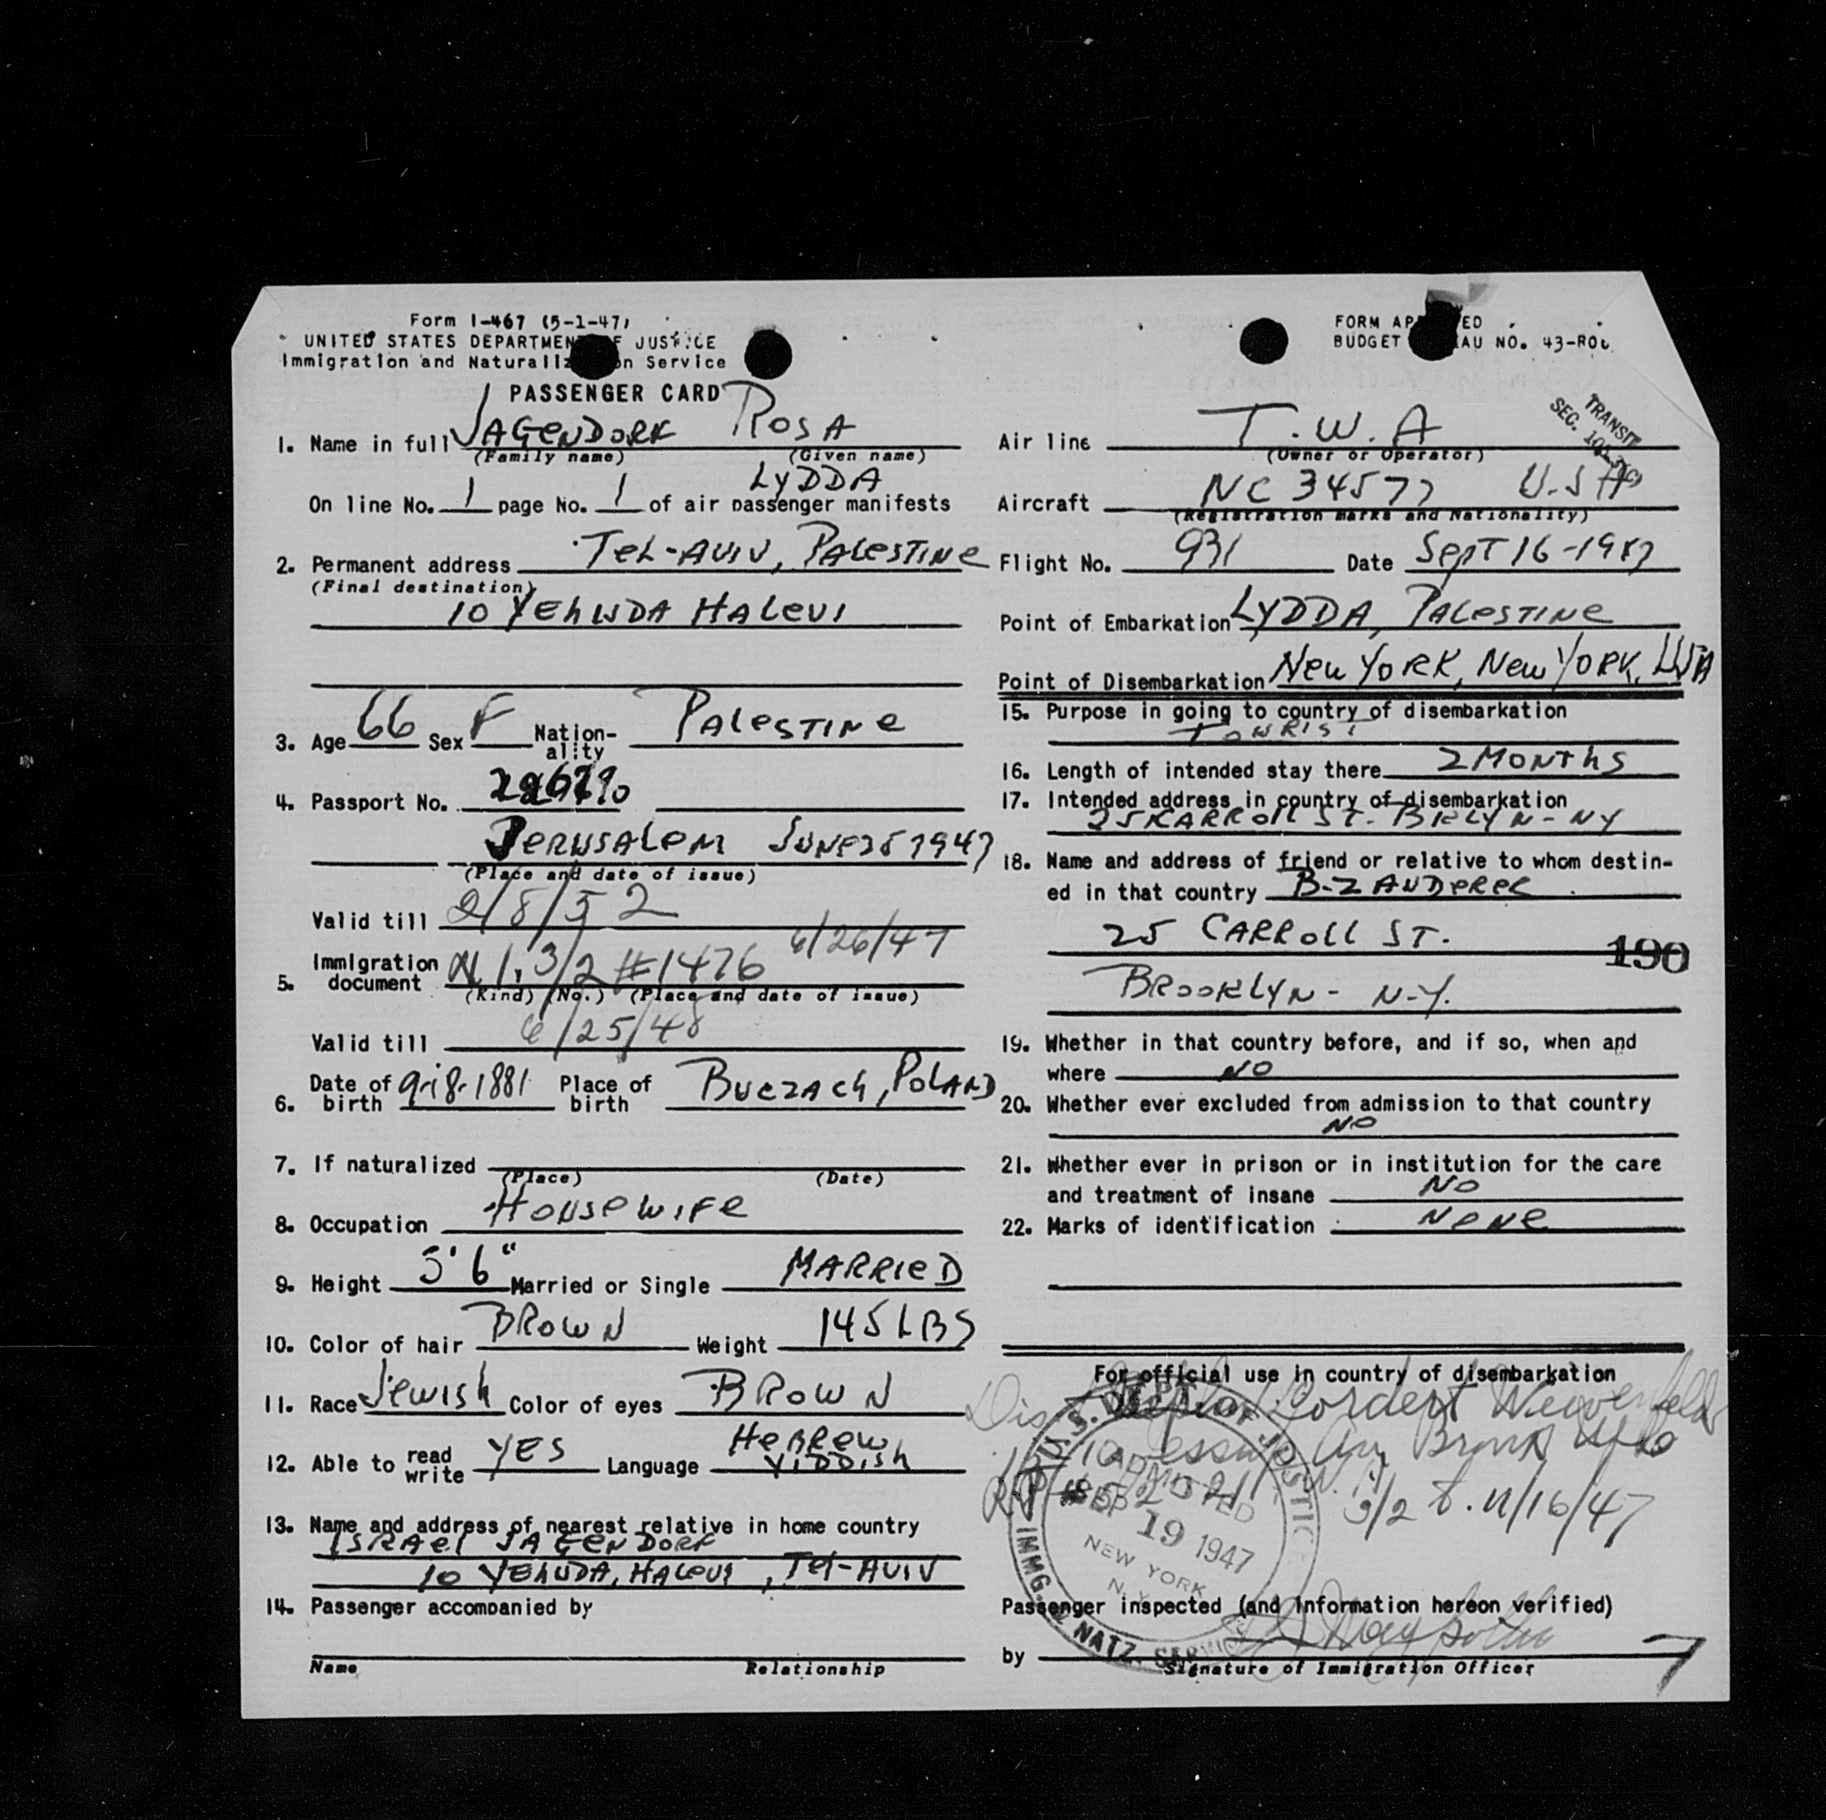 Form I-467 (5-1-47)
UNITED STATES DEPARTMEN F JUSTICE
Immigration and Service
PASSENGER CARD
1. Name in full JAGENDORF ROSA
(Family name) (Given name)
LYDDA
On line No. 1 page No. 1 of air passenger manifests
2. Permanent address TEL-AVIV, PALESTINE
(Final destination)
10 YEHUDA HALEVI
3. Age 66 Sex F Nation-ality PALESTINE
4. Passport No.
JERUSALEM JUNE 25 1947
(Place and date of issue)
Valid till 2/8/52
5. Immigration document 3/2 #1476 6/26/47
(Kind) (No.) (Place and date of issue)
Valid till 6/25/48
6. Date of birth 9-18-1881 Place of birth BUCZACH, POLAND
7. If naturalized
(Place) (Date)
8. Occupation HOUSEWIFE
9. Height 5'6" Married or Single MARRIED
10. Color of hair BROWN Weight 145 LBS
11. Race JEWISH Color of eyes BROWN
12. Able to read write YES Language HEBREW YIDDISH
13. Name and address of nearest relative in home country
ISRAEL JAGENDORF
10 YEHUDA, HALEVI, TEL-AVIV
14. Passenger accompanied by
Name Relationship
FORM AP ED
BUDGET AU NO. 43-RO
TRANSIT
SEC.
Air line T.W.A
(Owner or Operator)
Aircraft NC 34577 U.S.A
(Registration marks and Nationality)
Flight No. 931 Date SEPT 16-1947
Point of Embarkation LYDDA, PALESTINE
Point of Disembarkation NEW YORK, NEW YORK, USA
15. Purpose in going to country of disembarkation
TOURIST
16. Length of intended stay there 2 MONTHS
17. Intended address in country of disembarkation
25 KARROLL ST. BKLYN-NY
18. Name and address of friend or relative to whom destin-
ed in that country B. ZANDERER
25 CARROLL ST.
190
BROOKLYN- N-Y.
19. Whether in that country before, and if so, when and
where NO
20. Whether ever excluded from admission to that country
NO
21. Whether ever in prison or in institution for the care
and treatment of insane NO
22. Marks of identification NONE
For official use in country of disembarkation
U.S. DEPT. OF JUSTICE
ADMITTED
SEP 19 1947
NEW YORK
N.Y.
IMMG. & NATZ. SERVICE
3/2 t. 11/16/47
Passenger inspected (and information hereon verified)
by
Signature of Immigration Officer
7